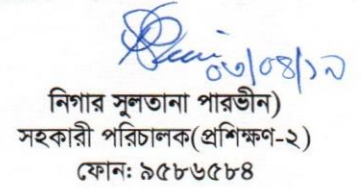 ০৩/০৪/১৯
নিগার সুলতানা পারভীন)
সহকারী পরিচালক(প্রশিক্ষণ-২)
ফোন: ৯৫৮৬৫৮৪